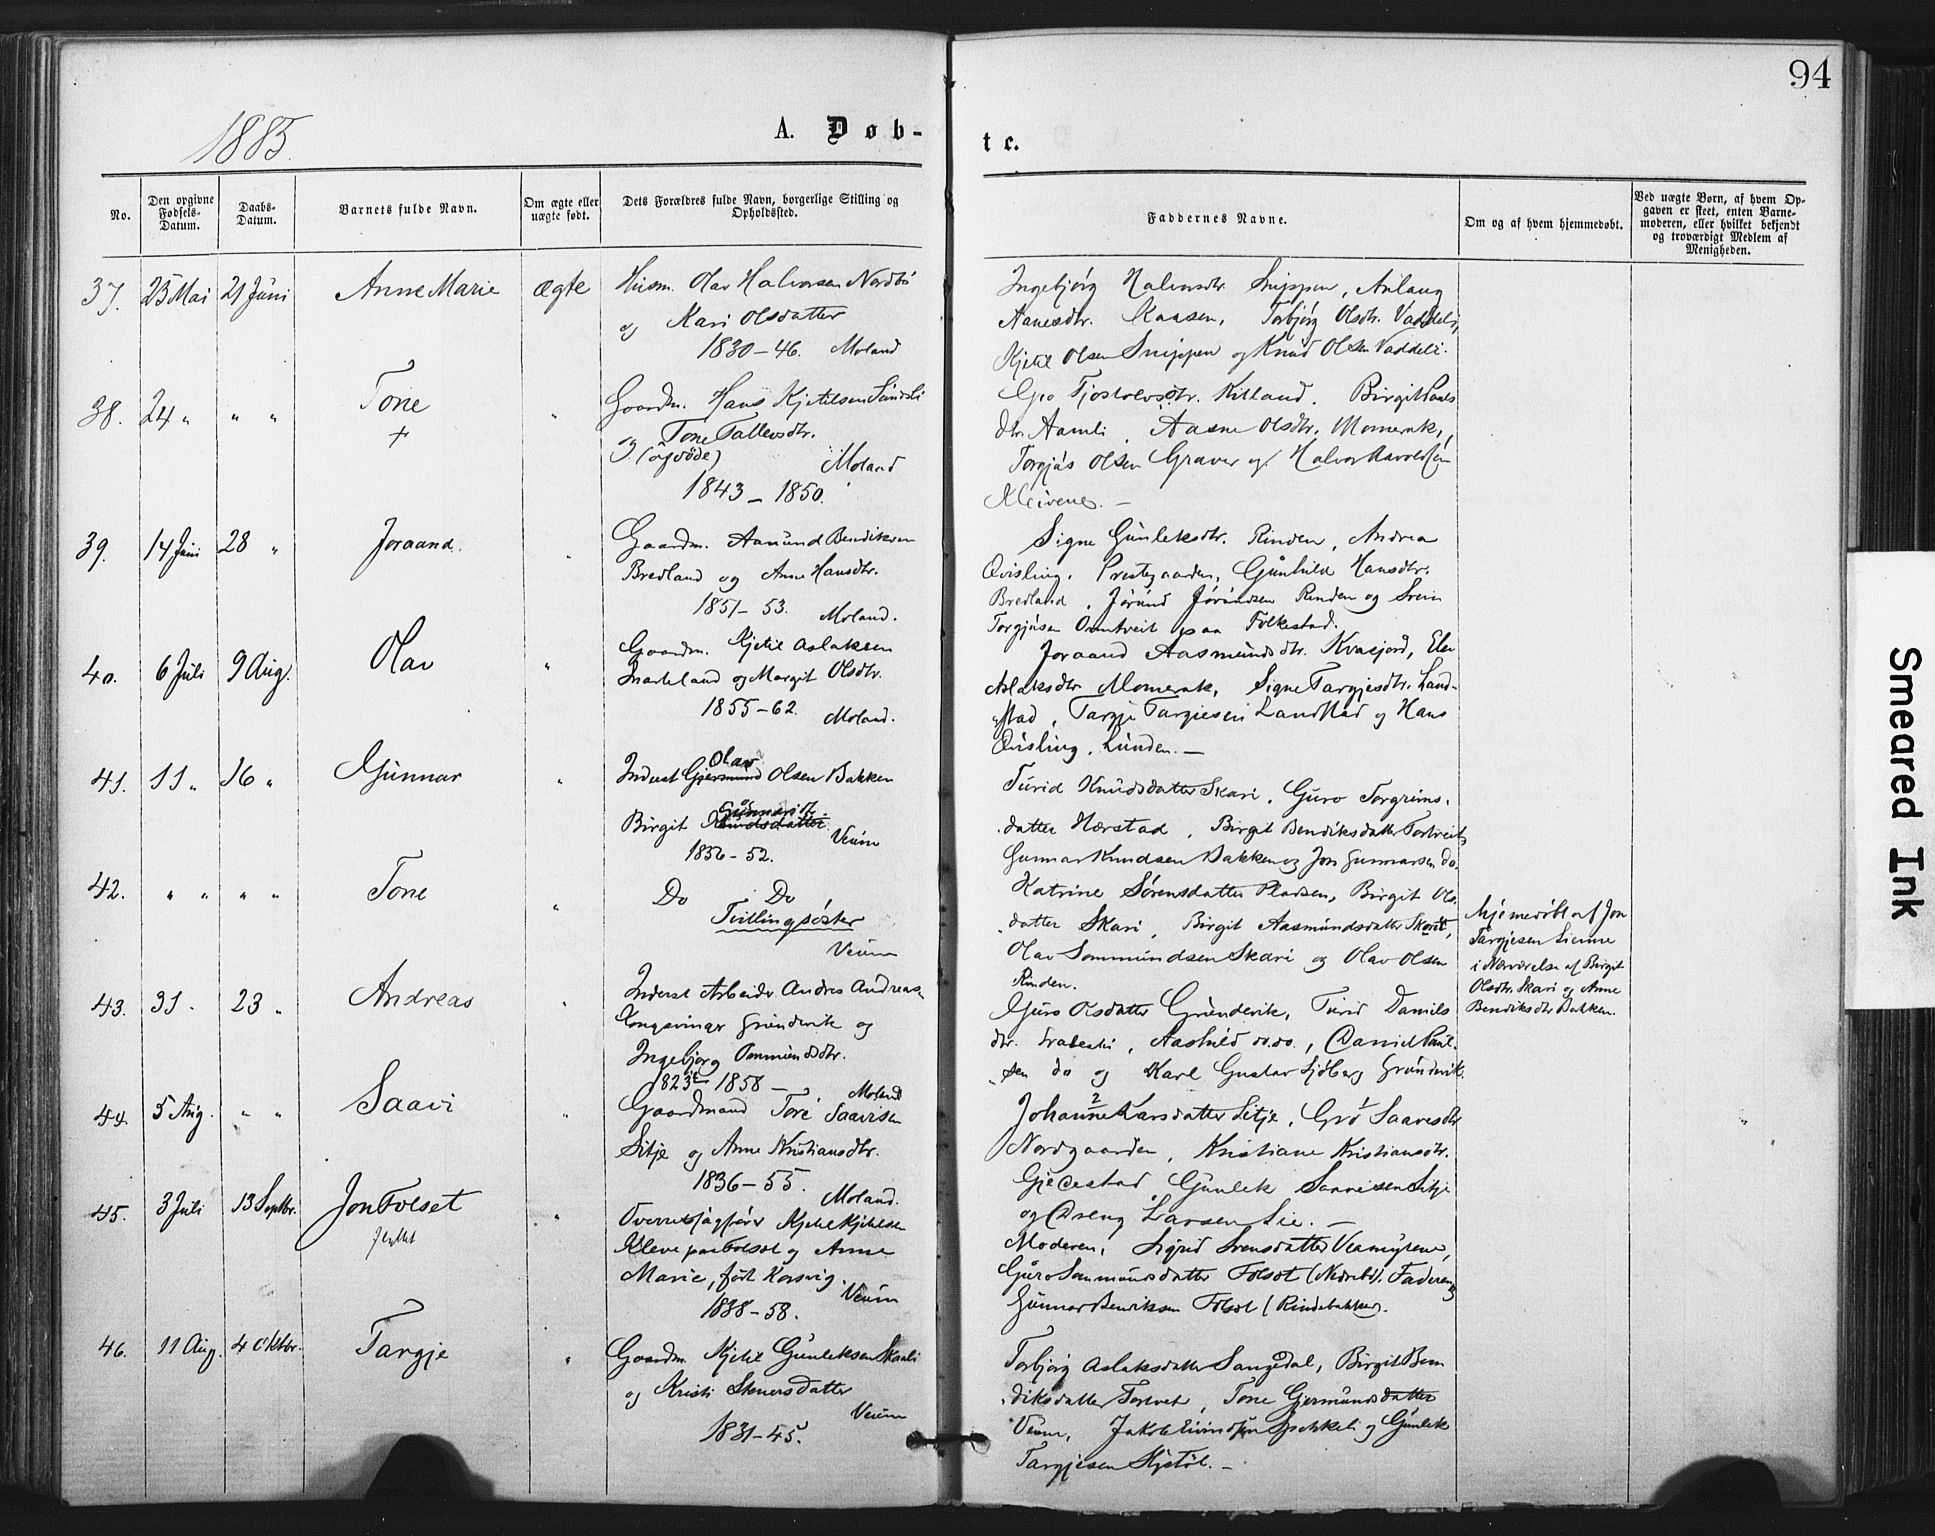 94
1885.
A. Døb-
te.
No.
Den opgivne Fødsels-Datum.
Daabs-Datum.
Barnets fulde Navn.
Om ægte eller uægte født.
Dets Forældres fulde Navn, borgerlige Stilling og Opholdssted.
Faddernes Navne.
Om og af hvem hjemmedøbt.
Ved uægte Børn, af hvem Opgaven er skeet, enten Barnemoderen, eller hvilket bekjendt og troværdigt Medlem af Menigheden.
37. 23 Mai 21 Juni Anne Marie ægte Husm. Olav Halvorsen Nordbö
og Kari Olsdatter
1830-46. Moland
Ingebjörg Halvorsdtr. Snippen, Anlaug
Aanesdtr. Kaasen, Torbjörg Olsdtr. Vaddeli,
Kjetil Olsen Snippen og Knud Olsen Vaddeli.
38. 24 " " " Tone " Gaardm. Hans Kjetilsen Sundsli
+
Tone Tallevsdtr.
Moland
1843 - 1850.
Gro Tjostolvsdtr. Killand. Birgit
dtr. Aamli, Aasne Olsdtr. Momerak,
Torgjus Olsen Graver og Halvor
Kleivene. -
39. 14 Juni 28 " Joraand. " Gaardm. Aamund Bendiksen
Bredland og Anne Hansdtr.
1851-53. Moland.
Signe Gunleksdtr. Rinden, Andrea
Qvisling. Prestegaarden, Gunhild Hansdtr.
Bredland, Jörund Jörundsen Rinden og Svein
Torgjusen Omtveit paa Folkestad.
40. 6 Juli 9 Aug. Olav " Gaardm. Kjetil Aslaksen
og Margit Olsdtr.
1855-62. Moland.
Joraand Aasmundsdtr. Kvasjord,
Aslaksdtr Momerak, Signe Targjesdtr. Land-
stad, Targje Targjesen Landstad og Hans
Qvisling, Lunden. -
41. 11 " 16 " Gunnar " Inderst Gjermund Olsen Bakken
Olav
Gunnarsdtr.
Birgit Knudsdatter
Veum
1836-52.
Turid Knudsdatter Skari, Guro Torgrims-
datter Hærstad, Birgit Bendiksdatter Tortveit,
Gunnar Knudsen Bakken og Jon Gunnarsen do.
42. " " " " Tone " Do Do
Tvillingsöster
Veum
Katrine Sörensdatter Pladsen, Birgit Ols-
datter Skari, Birgit Aasmundsdatter
Olav Sommundsen Skari og Olav Olsen
Rinden.
hjemedöbt af Jon
Targjesen Lienne
i Nærværelse af Birgit
Olsdtr. Skari og Anne
Bendiksdtr Bakken.
43. 31 . 23 " Andreas " Inderst Arbeider Andres Andreas-
Kongsvinger Grundevik og
Ingebjorg Ommundsdtr.
1823 - 1858 - Moland
Guro Olsdatter Grundevik, Turid Daniels
dtr. , Aashild do. do., Daniel Paul-
sen do og Karl Gustav Sjöberg Grundevik.
44. 5 Aug. " " Saavi " Gaardmand Tore Saavisen
Sitje og Anne Kristiansdtr.
1836-55. Moland.
Johanne Larsdatter Sitje, Gro Saavesdtr
Nordgaarden, Kristiane Kristiansdtr.
Gjelestad, Gunlek Saavesen Sitje
og Dreng Larsen Lie. -
45. 3 Juli 13 Septbr. Jon Folset " Overretssagförer Kjetil Kjetilsen
flyttet
Kleve paa Folsot og Anne
Marie, født Korsvig.
Veum
1838-58.
Moderen, Sigrid Svensdatter Veamyrene,
Guro Sommundsdatter Folsot (Nedrebö), Faderen og
Gunnar Bendiksen Folsot (Rindebakken).
46. 11 Aug. 4 Oktbr. Targje " Gaardm Kjetil Gunleksen Skaali
og Kristi Steners datter
Veum
1831-45.
Torbjörg Aslaksdatter Sangedal, Birgit Ben
diksdatter Tortvet, Tone Gjermundsdatter
Veum, Jakob Eivindsen og Gunlek
Targjesen Hjetöl. -
Smeared Ink